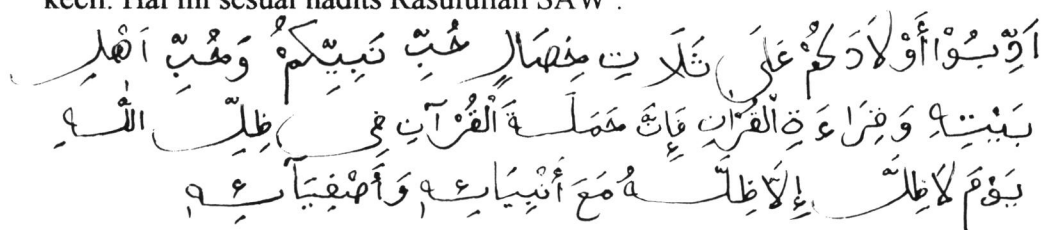 kecil. Hal ini sesuai hadits Rasulullah SAW :
اَدِّبُوْا أَوْلَادَكُمْ عَلَى ثَلَاثِ خِصَالٍ حُبِّ نَبِيِّكُمْ وَحُبِّ اَهْلِ
بَيْتِهِ وَقِرَاءَةِ الْقُرْانِ فَإِنَّ حَمَلَةَ الْقُرْآنِ فِي ظِلِّ اللّٰهِ
يَوْمَ لَا ظِلَّ إِلَّا ظِلَّهُ مَعَ أَنْبِيَائِهِ وَأَصْفِيَآئِهِ